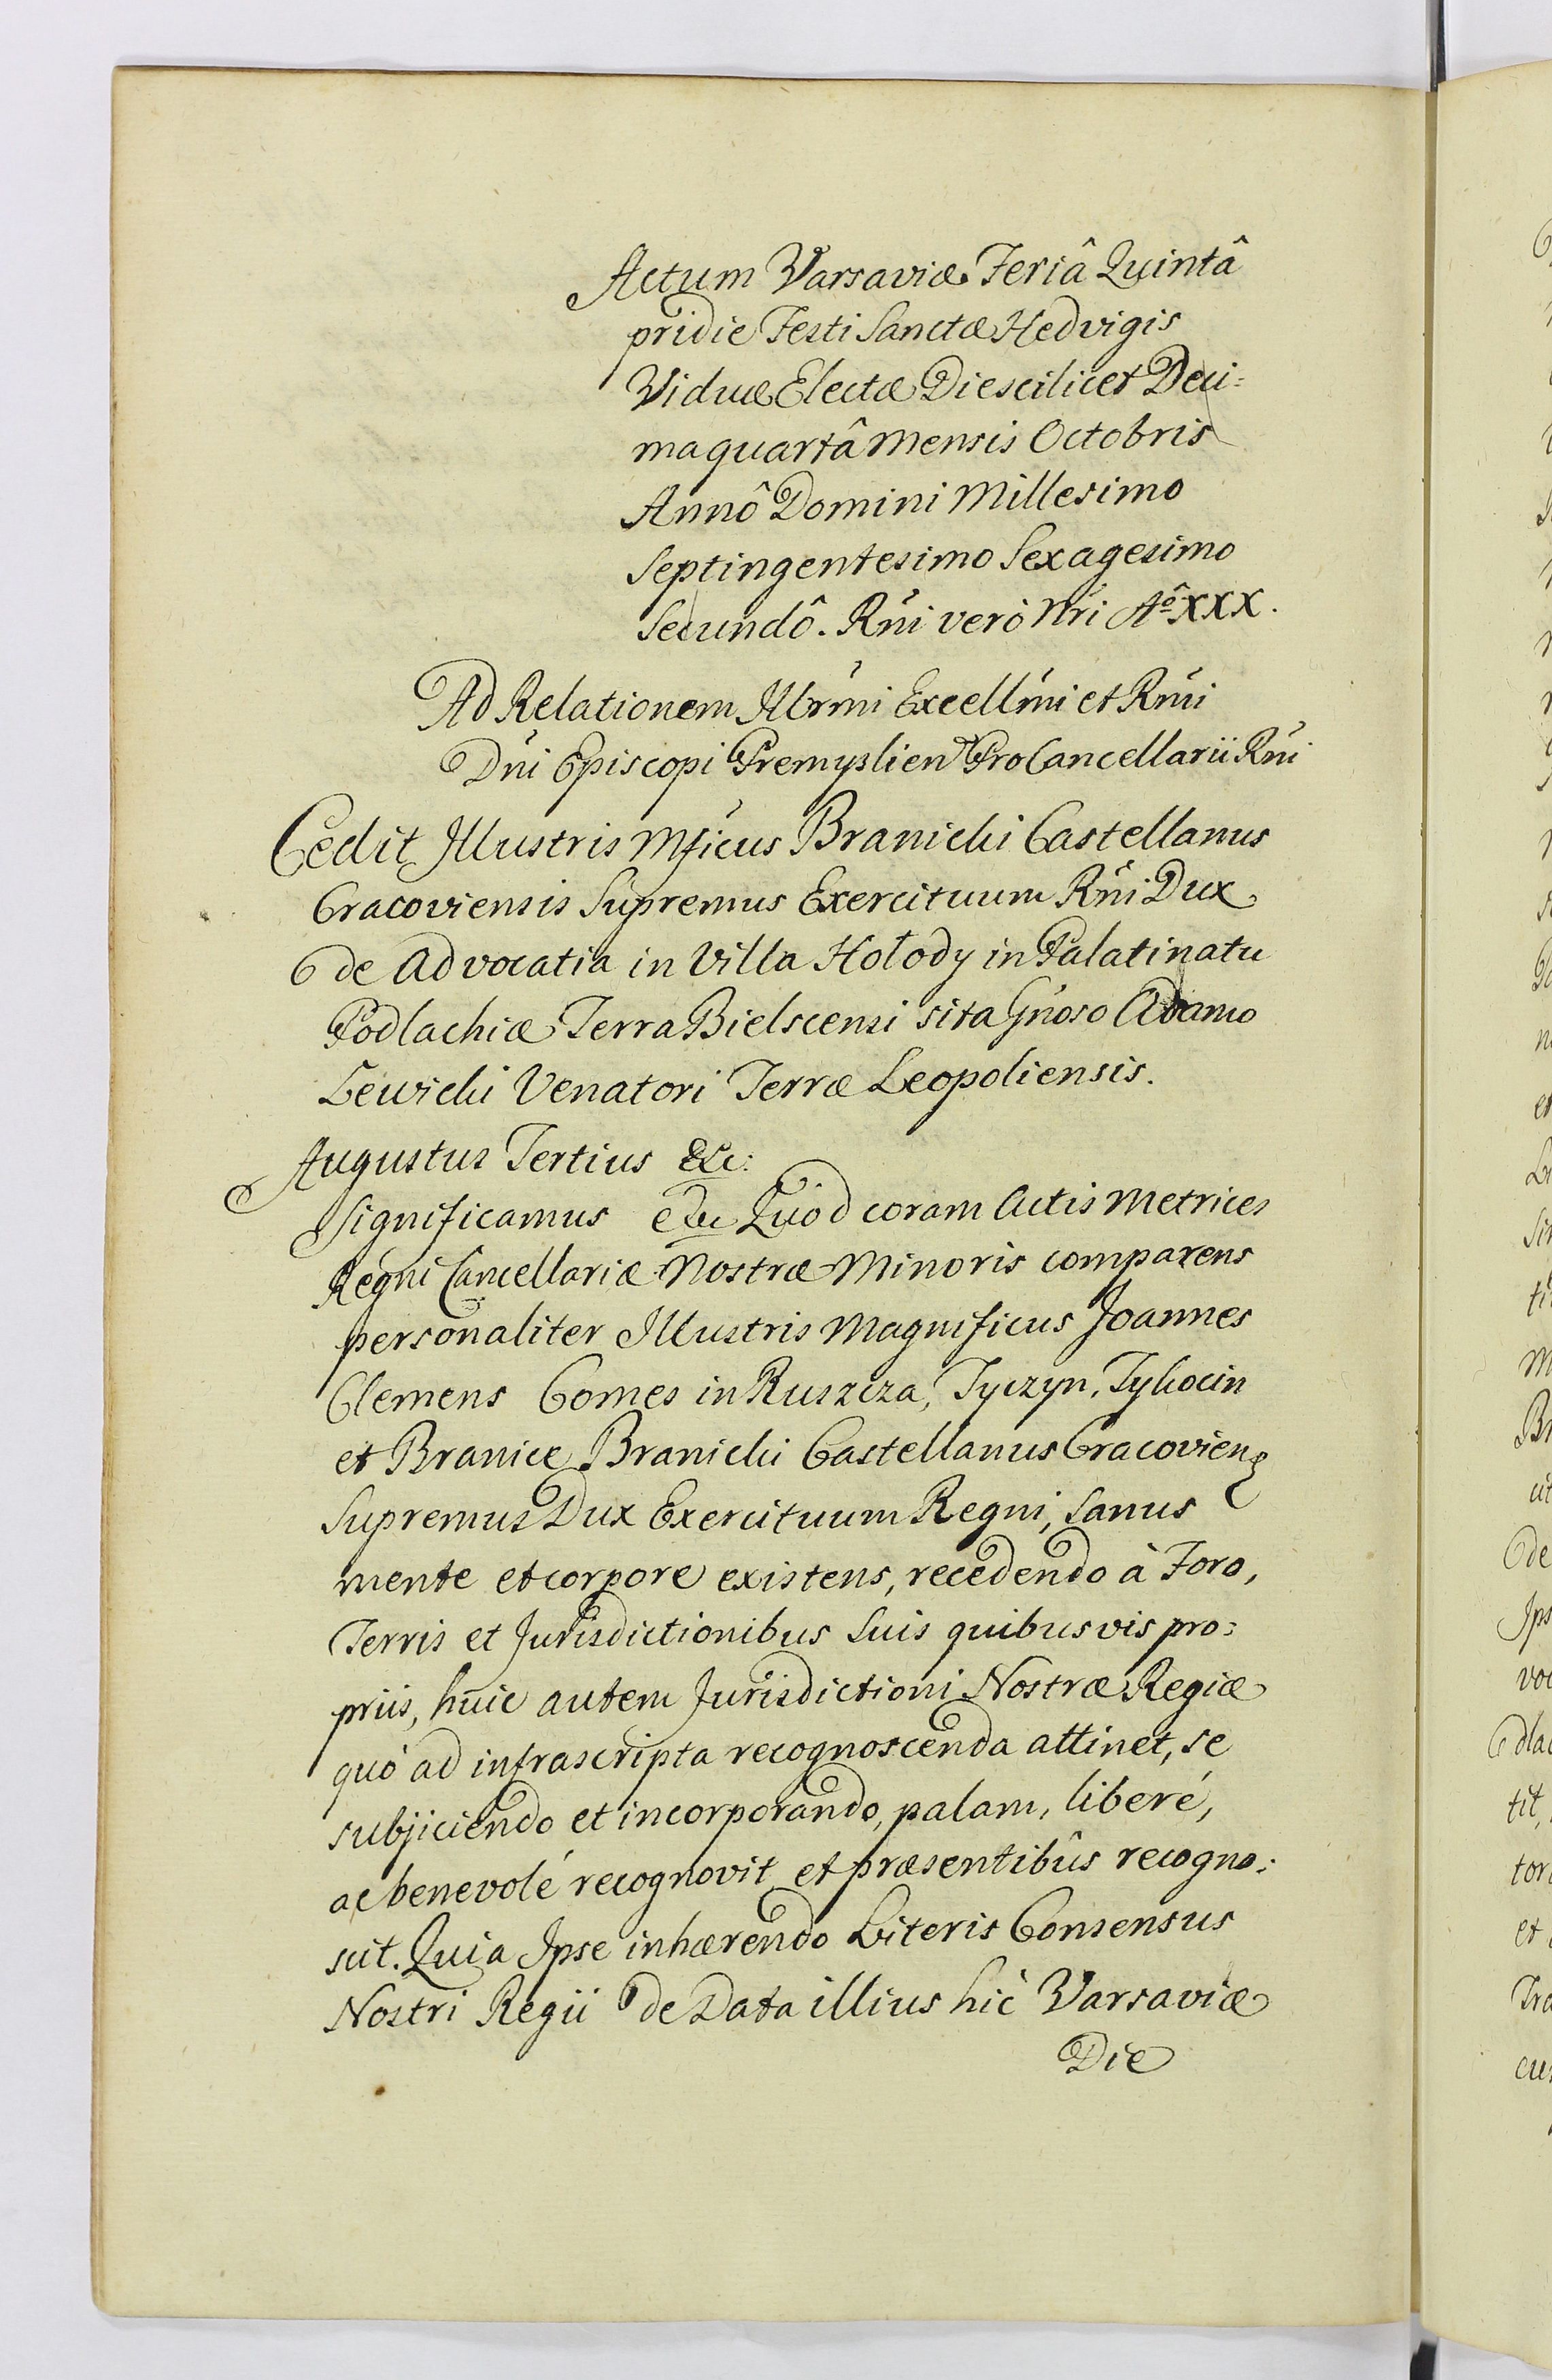 Actum Varsaviæ Feriâ Quintâ
pridie Festi Sanctæ Hedvigis
Viduæ Electæ Die scilicet Deci=
maquartâ Mensis Octobris
Annô Domini Millesimo
Septingentesimo Sexagesimo
Secundô. Rni verò Nri Aô XXX.
Ad Relationem Illrmi Excellmi et Rmi
Dni Episcopi Premyslien ProCancellarii Rni
Cedit Illustris Mficus Branicki Castellanus
Cracoviensis Supremus Exercituum Rni Dux
de Advocatia in Villa Hołody in Palatinatu
Podlachiæ Terra Bielscensi sita Gnoso Adamo
Lewicki Venatori Terræ Leopoliensis.
Augustus Tertius &c:
Significamus &c Quod coram Actis Metrices
Regni Cancellariæ Nostræ Minoris comparens
personaliter Illustris Magnificus Joannes
Clemens Comes in Ruszcza, Tyczyn, Tykocin
et Branice Branicki Castellanus Cracovien
Supremus Dux Exercituum Regni, sanus
mente et corpore existens, recedendo à Foro,
Terris et Jurisdictionibus Suis quibusvis pro=
priis, huic autem Jurisdictioni Nostræ Regiæ
quó ad infrascripta recognoscenda attinet, se
subjiciendo et incorporando, palam, liberé,
ac benevolé recognovit et præsentibûs recogno=
scit. Quia Ipse inhærendo Literis Consensus
Nostri Regii de Data illius hic Varsaviæ
Die